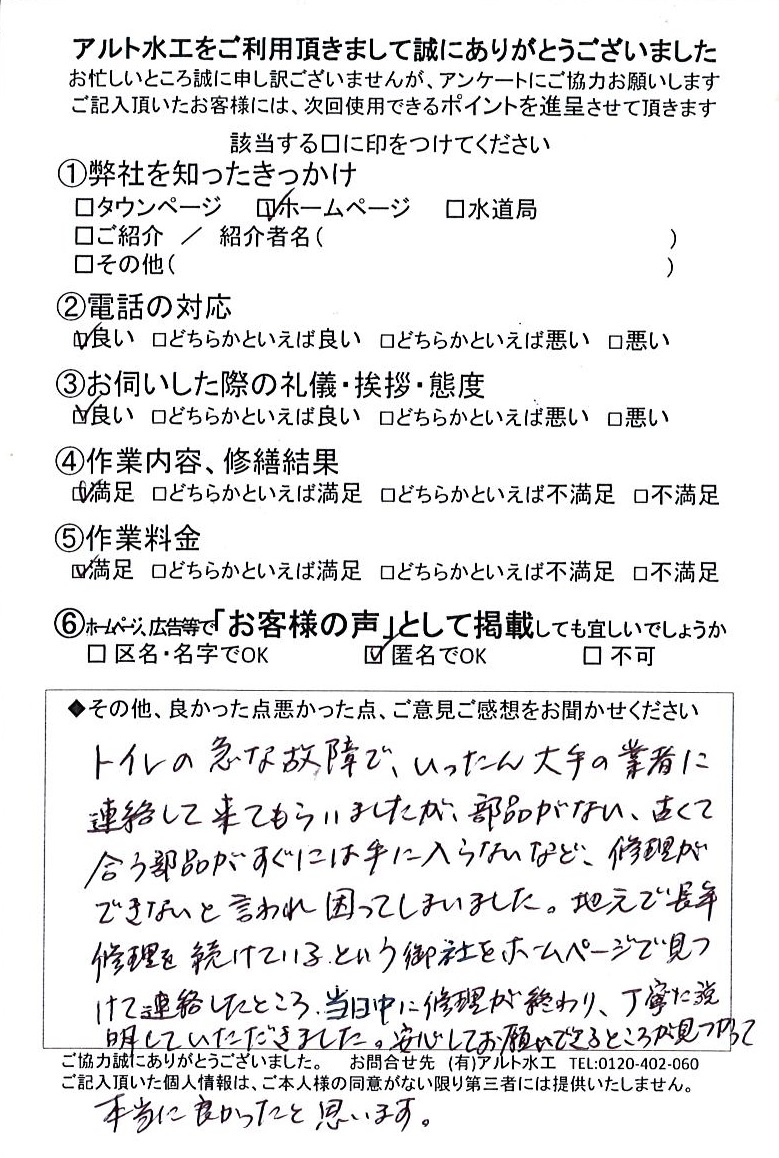 アルト水工をご利用頂きまして誠にありがとうございました
お忙しいところ誠に申し訳ございませんが、アンケートにご協力お願いします
ご記入頂いたお客様には、次回使用できるポイントを進呈させて頂きます
該当する□に印をつけてください
①弊社を知ったきっかけ
□タウンページ ☑ホームページ □水道局
□ご紹介 ／ 紹介者名( )
□その他( )
②電話の対応
☑良い □どちらかといえば良い □どちらかといえば悪い □悪い
③お伺いした際の礼儀・挨拶・態度
☑良い □どちらかといえば良い □どちらかといえば悪い □悪い
④作業内容、修繕結果
☑満足 □どちらかといえば満足 □どちらかといえば不満足 □不満足
⑤作業料金
☑満足 □どちらかといえば満足 □どちらかといえば不満足 □不満足
⑥ホームページ、広告等で「お客様の声」として掲載しても宜しいでしょうか
□ 区名・名字でOK ☑ 匿名でOK □ 不可
◆その他、良かった点悪かった点、ご意見ご感想をお聞かせください
トイレの急な故障で、いったん大手の業者に
連絡して来てもらいましたが、部品がない、古くて
合う部品がすぐには手に入らないなど、修理が
できないと言われ困ってしまいました。地元で長年
修理を続けている.という御社をホームページで見つ
けて連絡したところ.当日中に修理が終わり、丁寧に説
明していただきました。安心してお願いできるところが見つかって
ご協力誠にありがとうございました。 お問合せ先 (有)アルト水工 TEL:0120-402-060
ご記入頂いた個人情報は、ご本人様の同意がない限り第三者には提供いたしません。
本当に良かったと思います。